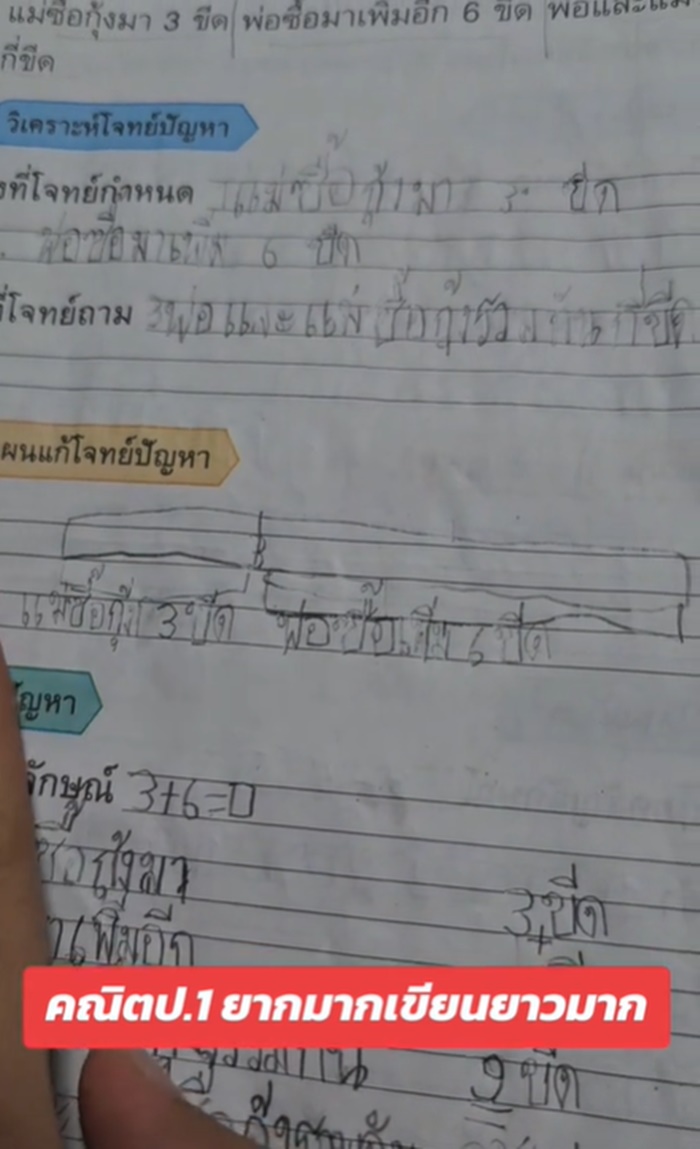 แม่ซื้อกุ้งมา 3 ขีด พ่อซื้อมาเพิ่มอีก 6 ขีด พ่อและแม่
กี่ขีด
วิเคราะห์โจทย์ปัญหา
ที่โจทย์กำหนด แม่ซื้อกุ้งมา 3 ขีด
พ่อซื้อมาเพิ่ม 6 ขีด
ที่โจทย์ถาม พ่อและแม่ซื้อกุ้งรวมกันกี่ขีด
แผนแก้โจทย์ปัญหา
แม่ซื้อกุ้ง 3 ขีด พ่อซื้อเพิ่ม 6 ขีด
ปัญหา
ลักษณ์ 3+6=□
ซื้อกุ้งมา 3 ขีด
+
มาเพิ่มอีก
คณิตป.1 ยากมากเขียนยาวมาก
รวมกัน 9 ขีด